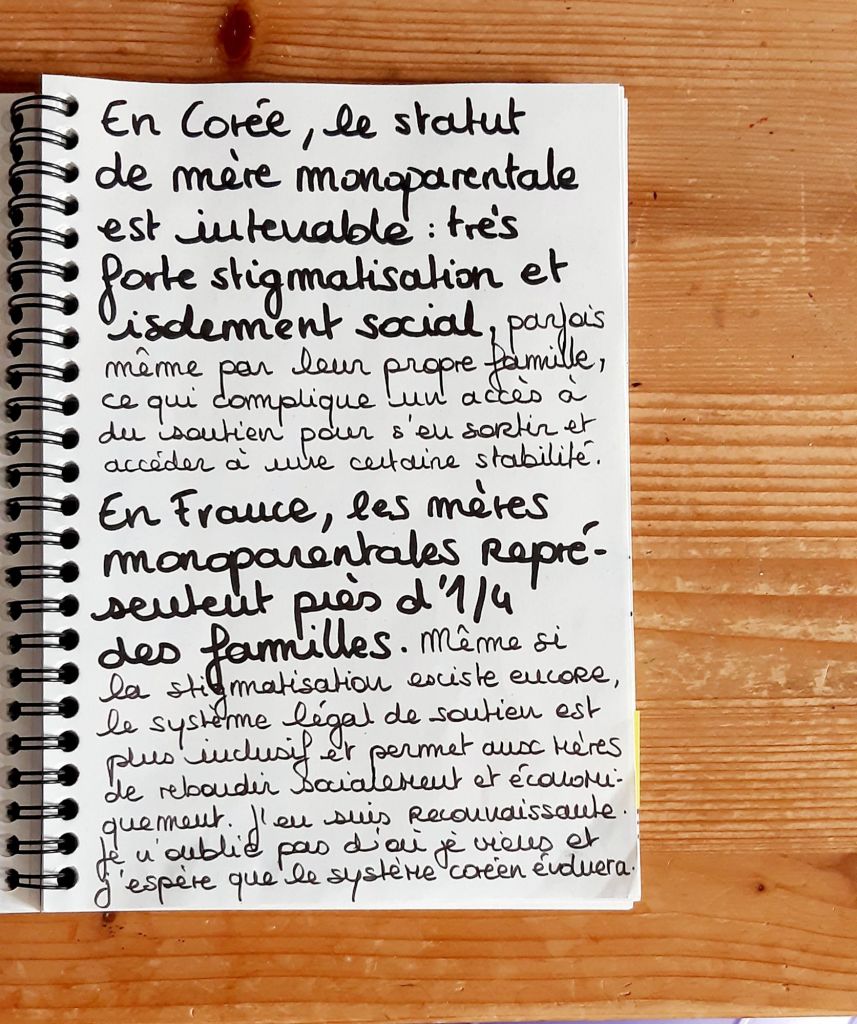 En Corée, le statut
de mère monoparentale
est intenable : très
forte stigmatisation et
isolement social, parfois
même par leur propre famille,
ce qui complique un accès à
du soutien pour s'en sortir et
accéder à une certaine stabilité.
En France, les mères
monoparentales repré-
sentent près d'1/4
des familles. Même si
la stigmatisation existe encore,
le système légal de soutien est
plus inclusif et permet aux mères
de rebondir socialement et économi-
quement. J'en suis reconnaissante.
Je n'oublie pas d'où je viens et
j'espère que le système coréen évoluera.